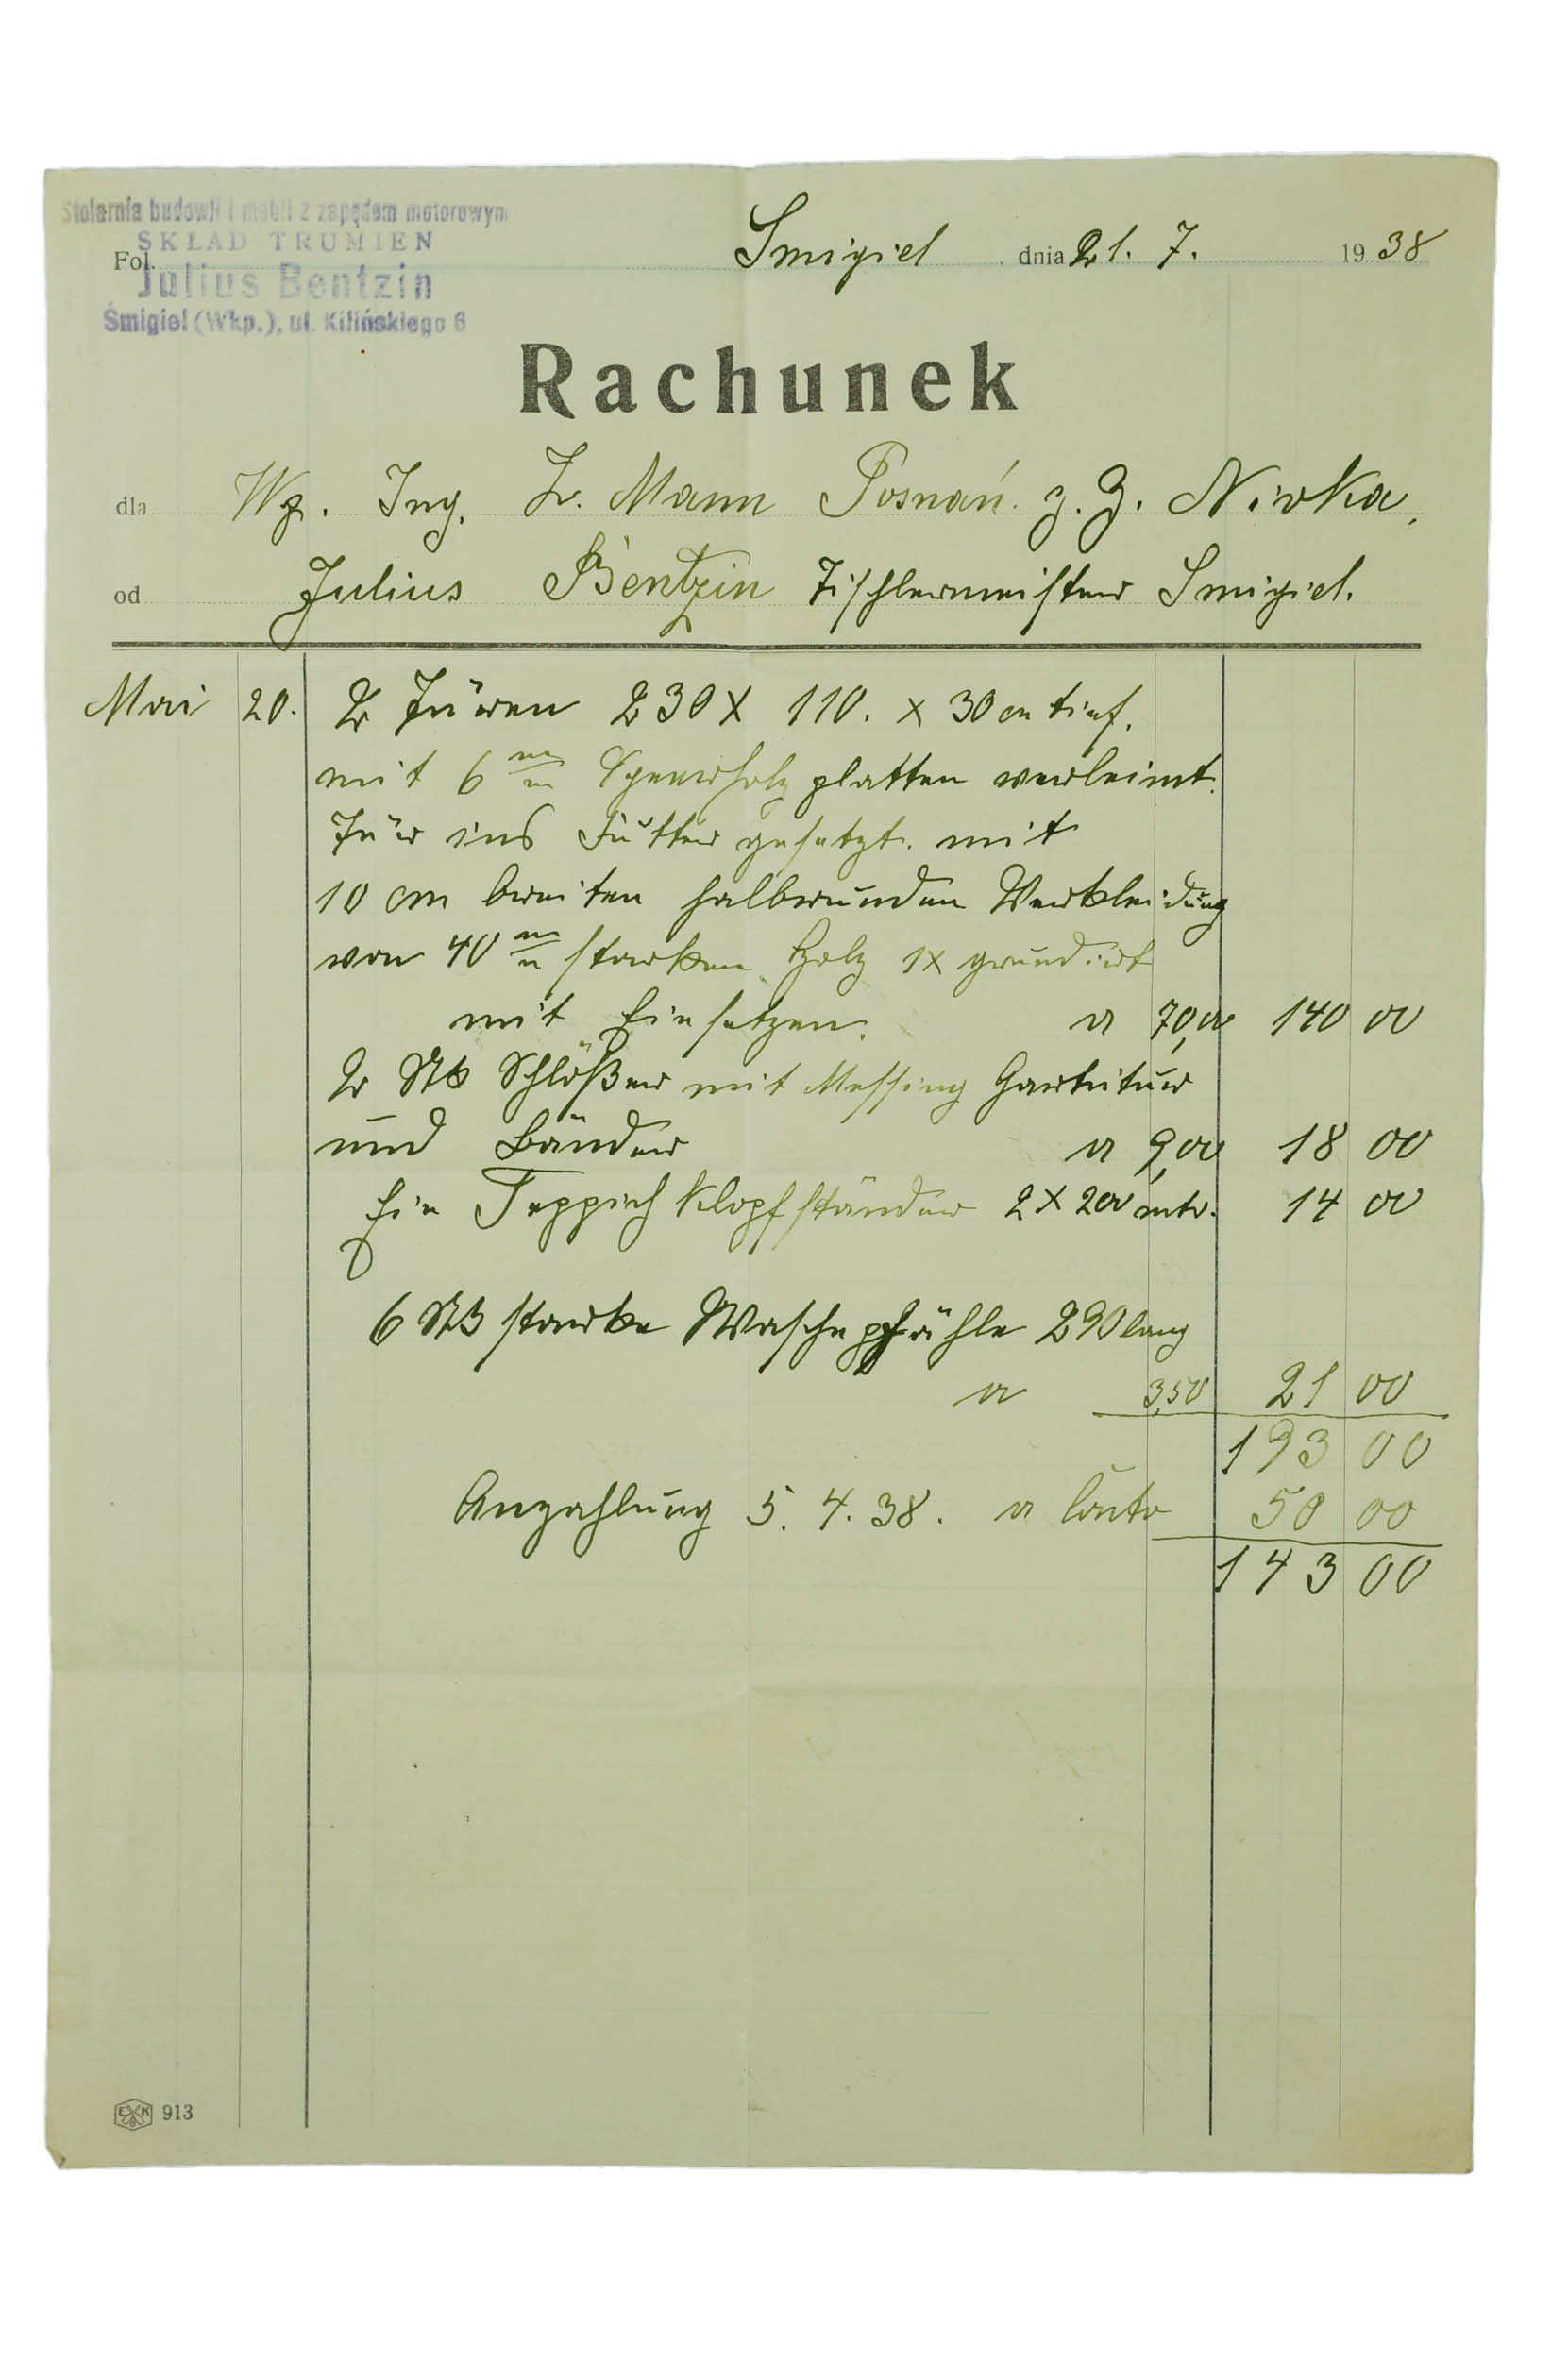 Stolarnia budowli i mebli z zapędem motorowym
SKŁAD TRUMIEN
Julius Bentzin
Śmigiel (Wkp.), ul. Kilińskiego 6
Fol. Smigiel dnia 21. 7. 1938
Rachunek
dla Wg. Ing. L. Mann Posnań. z. Z. Nivka.
od Julius Bentzin Tischlermeister Smigiel.
Mai 20. 2 Türen 230 X 110. x 30 cm tief.
mit 6 mm Sperrholzplatten verleimt.
Tür ins Futter gesetzt. mit
10 cm breiten halbrunden Verkleidung
von 40 mm starken Holz 1x grundirt
mit Einsetzen. a 70,00 140 00
2 Stk Schlößer mit Messing Garnitur
und Bänder a 9,00 18 00
Ein Teppich Klopfständer 2 x 200 mtr. 14 00
6 Stk starke Waschepfähle 290 lang
a 3,50 21 00
193 00
Anzahlung 5. 4. 38. a Conto 50 00
143 00
EKB 913